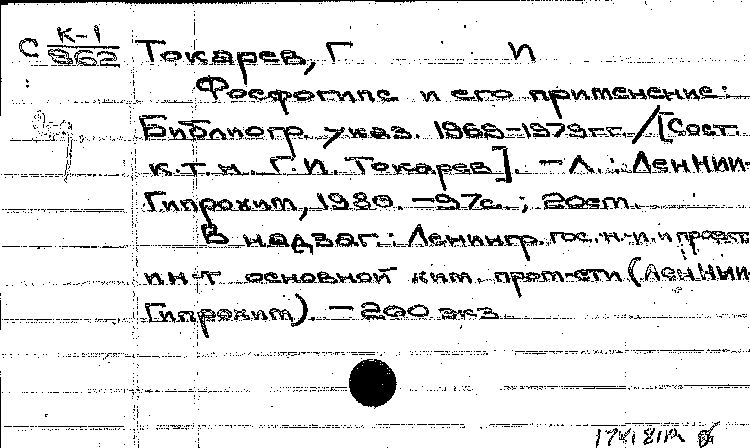 С К-1/862 Токарев, Г И
Фосфогипс и его применение:
Библиогр. указ. 1968-1979гг. / [Сост.
к.т.н. Г.И. Токарев]. – Л.: ЛенНИИ-
Гипрохим, 1980. – 97с.; 20см.
В надзаг.: Ленингр. гос. н.-и. и проект.
ин-т основной хим. пром-сти (ЛенНИИ-
Гипрохим). – 200 экз.